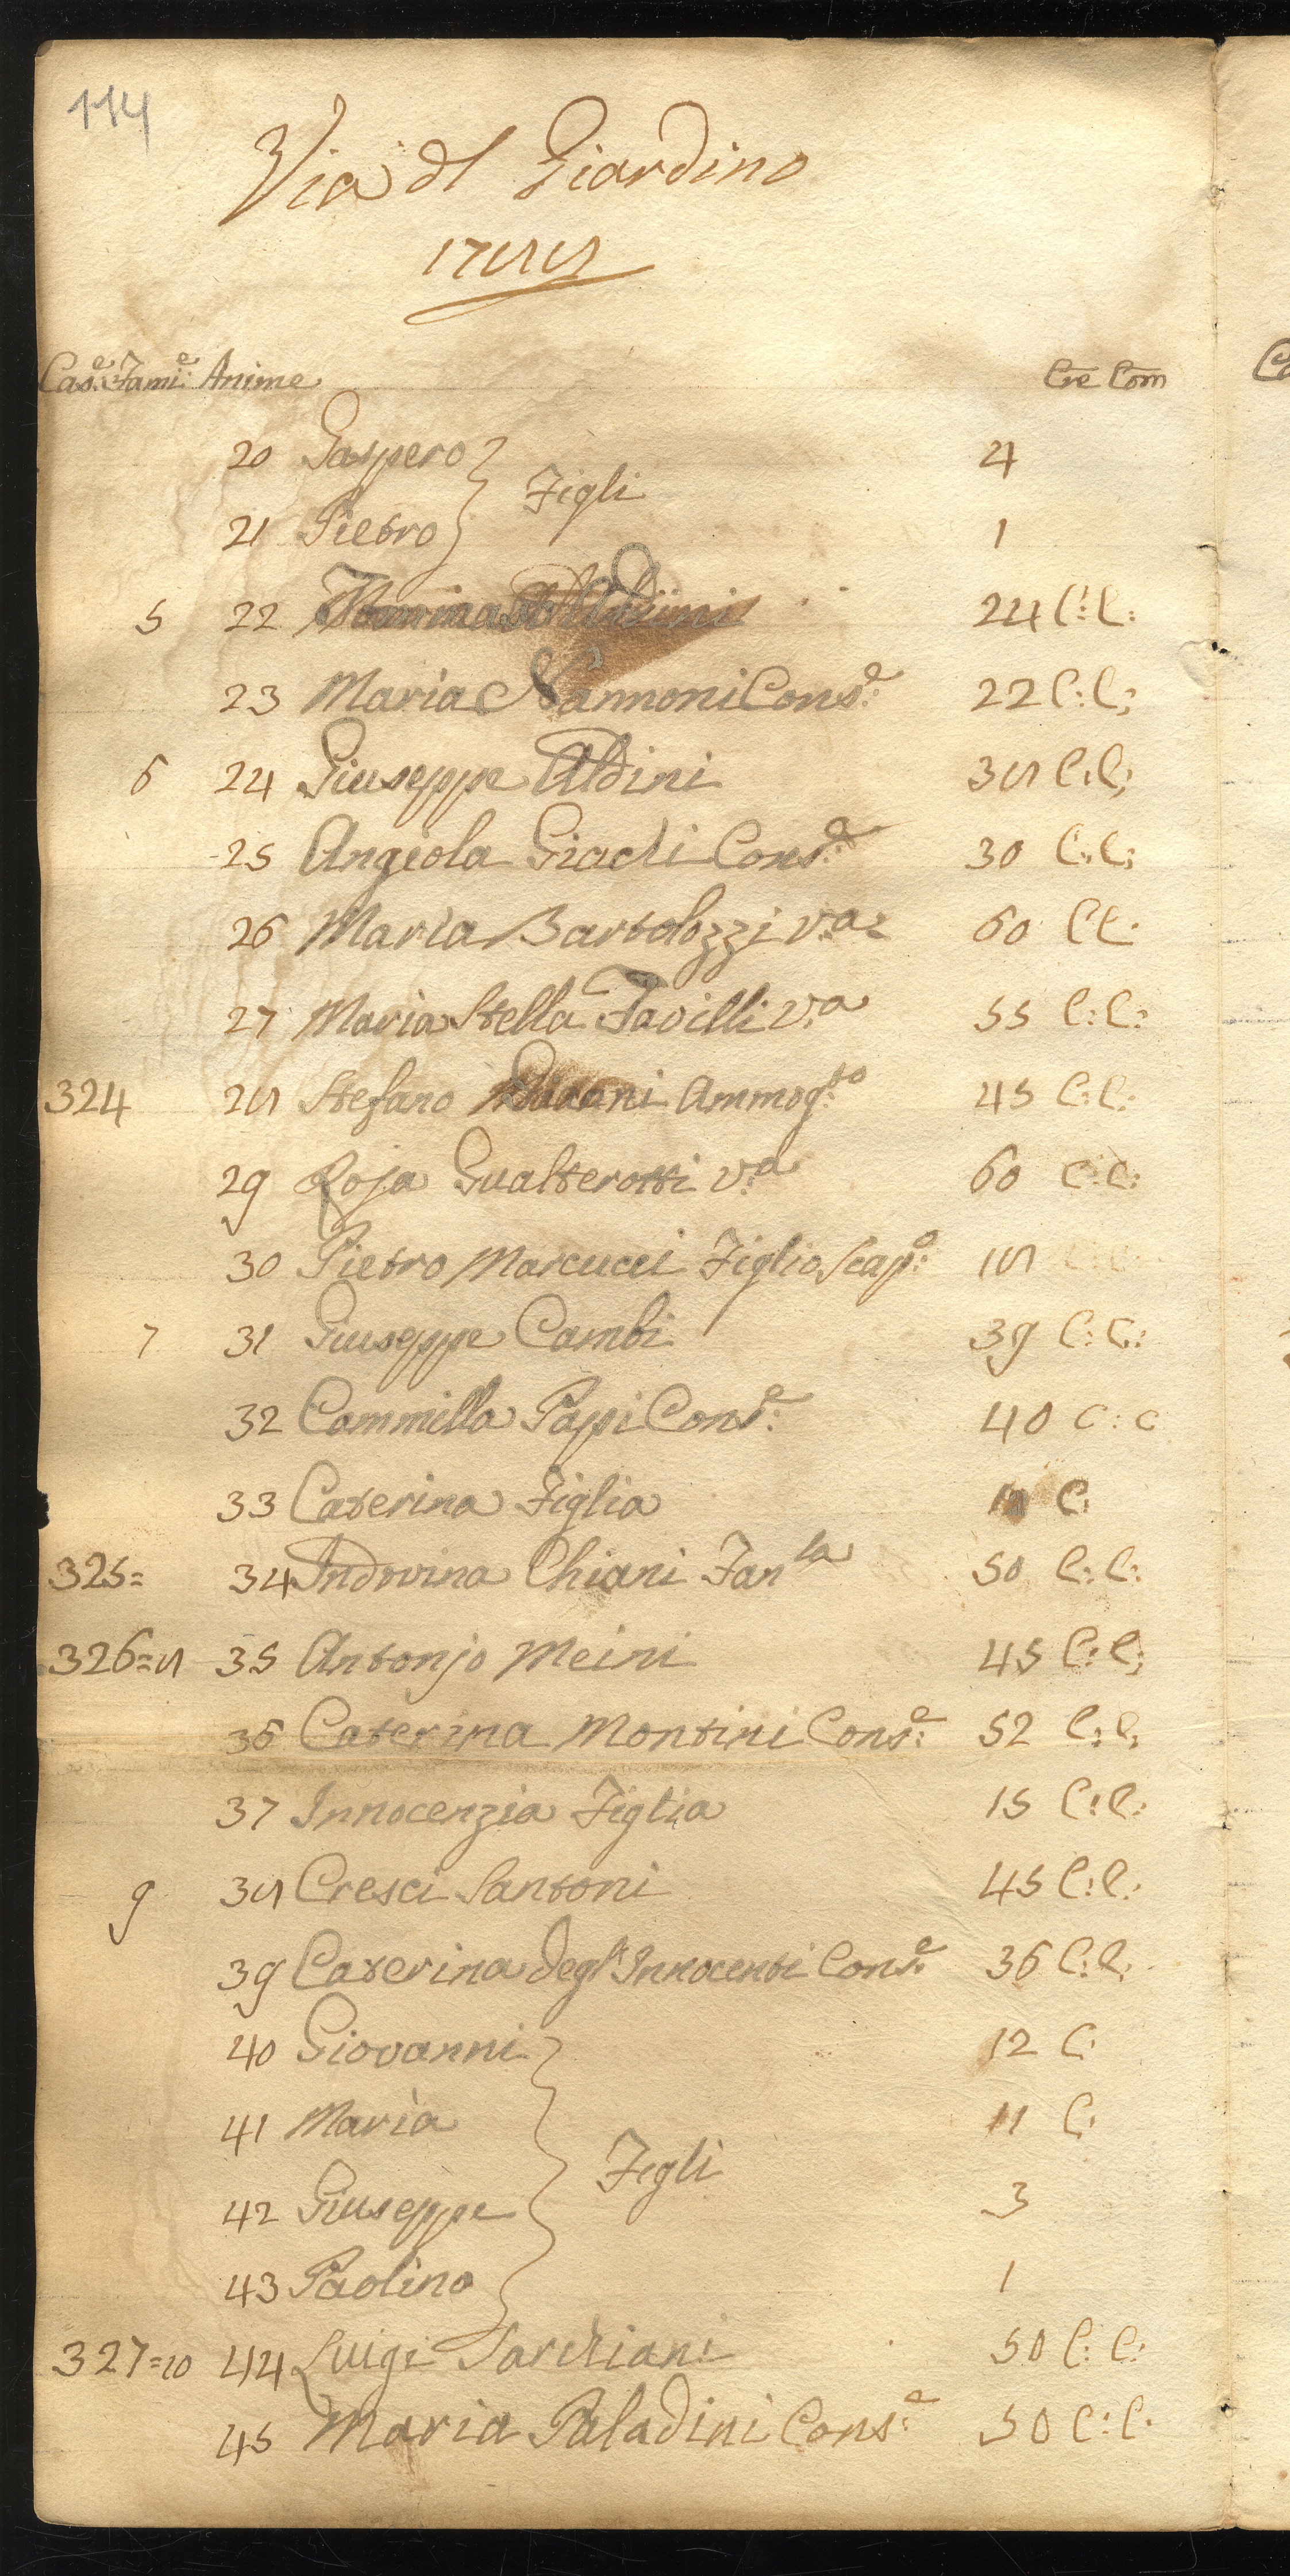 114
Via dl Giardino
1788
Case: Fami:e Anime Cre Com
20 Gaspero 4
Figli
21 Pietro 1
5 22 24 C: C:
23 Maria Nannoni Cons:e 22 C: C:
6 24 Giuseppe Aldini 38 C: C:
25 Angiola Giachi Cons:e 30 C: C:
26 Maria Bartolozzi v:a 60 C C:
27 Maria Stella Favilli v:a 55 C: C:
324 28 Stefano Ammog:to 45 C: C:
29 Roja Gualterotti v:a 60 C: C:
30 Pietro Marcucci Figlio Scap:o 18 C: C:
7 31 Giuseppe Cambi 39 C: C:
32 Cammilla Papi Cons:e 40 C: C
33 Caterina Figlia C:
325= 34 Indovina Chiani Fanla 50 C: C:
326=8 35 Antonjo Meini 45 C: C:
36 Caterina Montini Cons:e 52 C: C:
37 Innocenzia Figlia 15 C: C:
9 38 Cresci Santoni 45 C: C:
39 Caterina degl'Innocenti Cons:e 36 C: C:
40 Giovanni 12 C:
41 Maria 11 C:
Figli
42 Giuseppe 3
43 Paolino 1
327=10 44 Luigi Sarchiani 50 C: C:
45 Maria Paladini Cons:e 50 C: C: